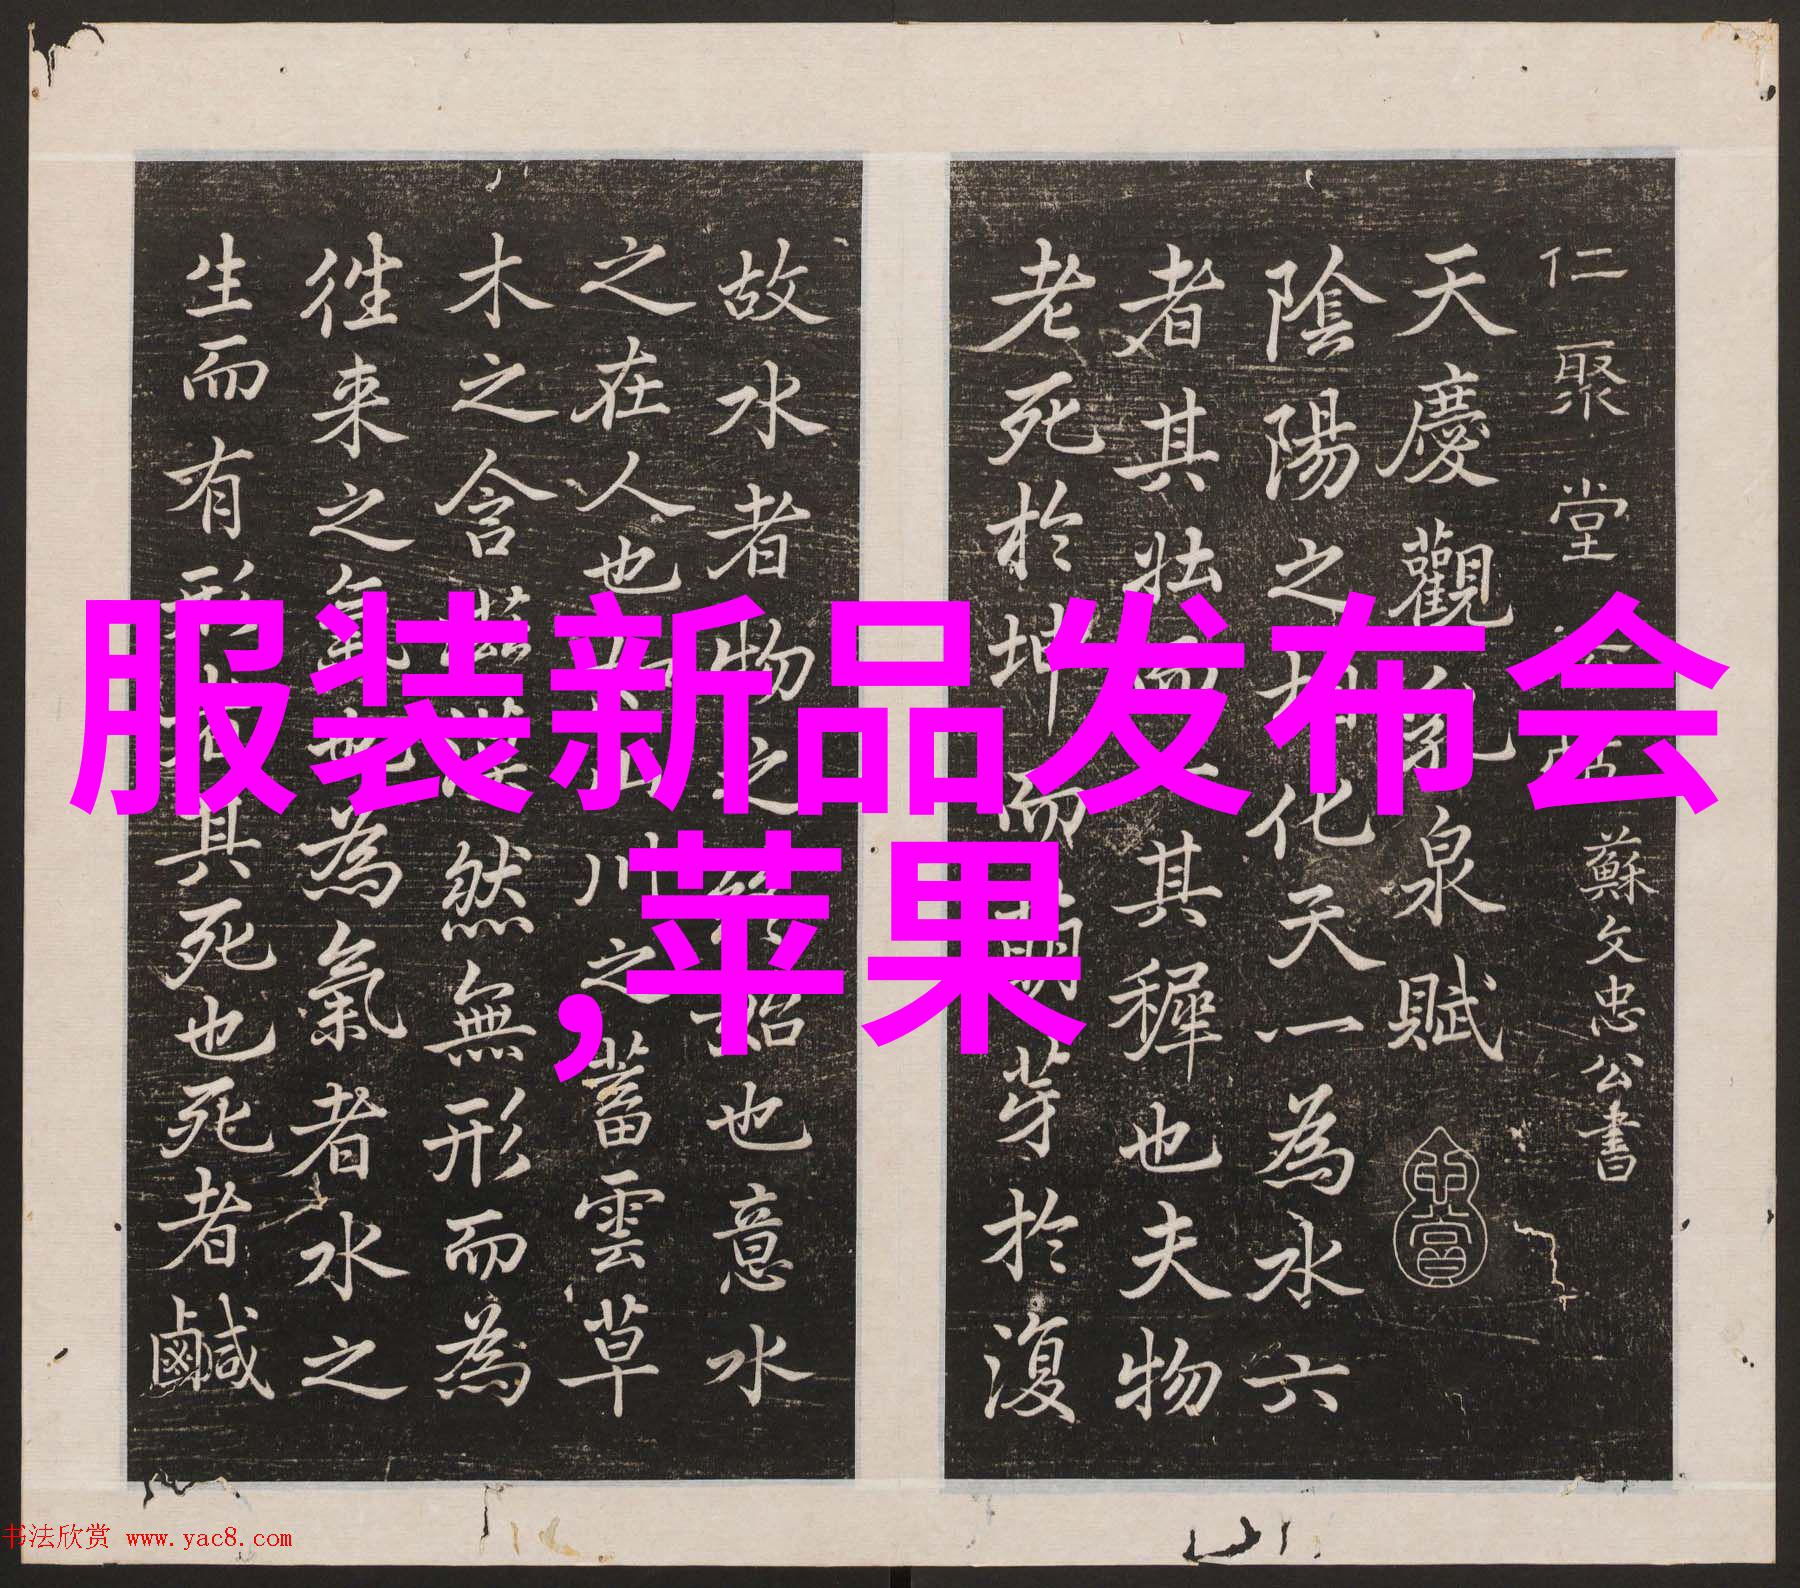 仁聚堂 蘇文忠公書
天慶觀乳泉賦
陰陽之相化天一為水六
者其壯而一其穉也夫物
老死於坤而萌芽於復
故水者物之終始也意水
之在人也如山川之蓄雲草
木之含滋漠然無形而為
徃来之氣也為氣者水之
生而有形者其死也死者鹹
服装新品发布会
,苹果
书法欣赏 www.yac8.com